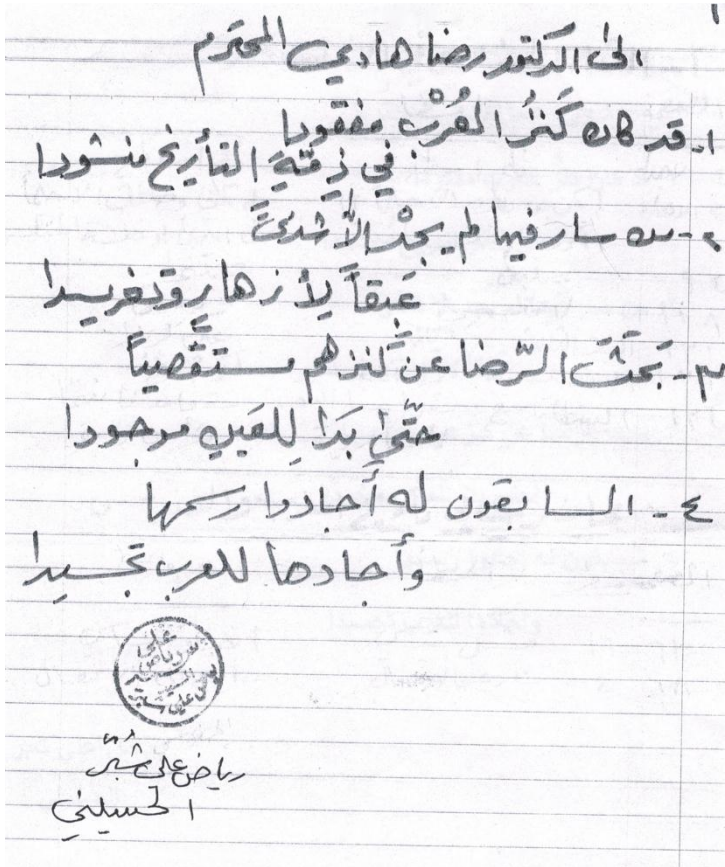 الى الدكتور رضا هادي المحترم
١- قد كان كَنزُ العُرْبِ مفقودا
في ذِمَّةِ التأريخ منشودا
٢- من سار فيها لم يجدْ الأشذىً
عَبِقاً لِأزهارٍ وتغريدا
٣- بَحَثَ الرّضا عن كَنزهم مستقصياً
حتّى بَدَا لِلعَينِ موجودا
٤- السابقون له أجادوا رسمها
وأجادها للعرب تجسيدا
رياض علي شُبّر
الحسيني